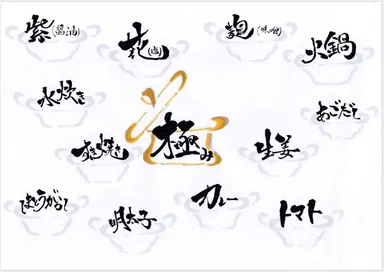 紫(醤油)
花(塩)
麹(味噌)
火鍋
水炊き
あごだし
すき焼き
極み
生姜
とうがらし
明太子
カレー
トマト